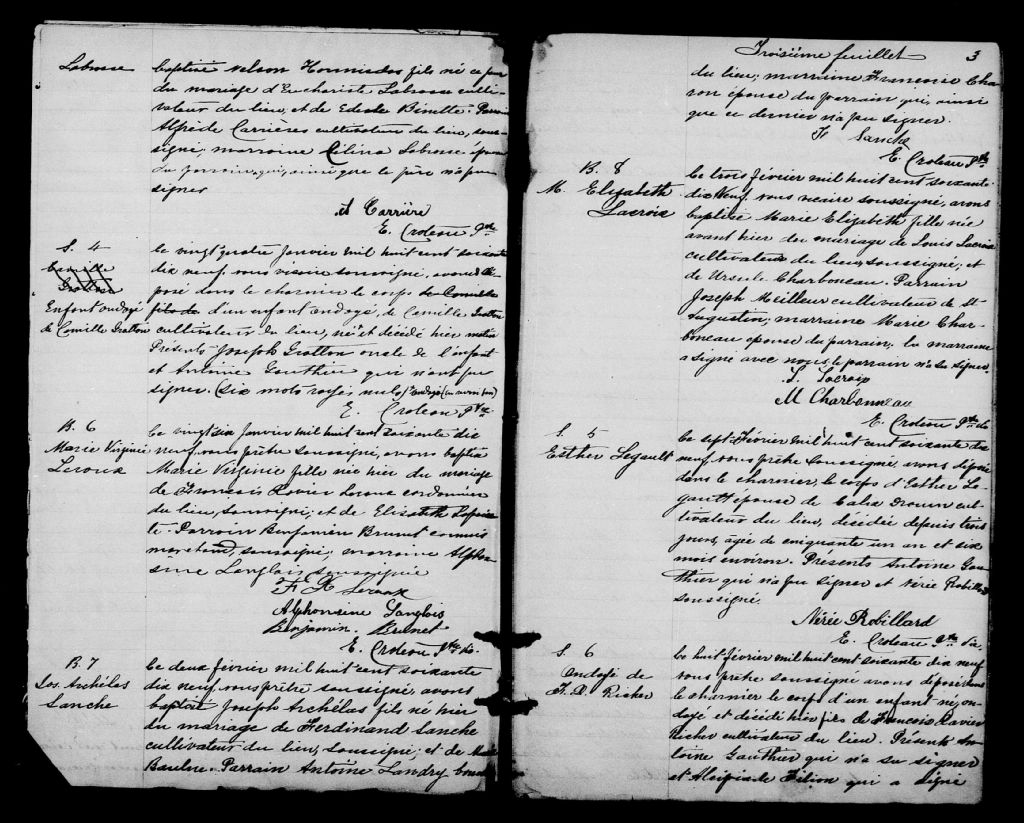 Labrosse
baptisé Nelson Hormisdas fils né ce jour
du mariage d'Euchariste Labrosse culti-
vateur du lieu, et de Binette. Parrain
Alfrède Carrières cultivateur du lieu, sous-
signé, marraine Célina Labrosse épouse
du parrain, qui, ainsi que le père n'a pu
signer
A Carrière
E. Croteau Ptre
S. 4
Camille
Gratton
Enfant ondoyé
de Camille Gratton
Le vingt quatre Janvier mil huit cent soixante
dix neuf, nous vicaire soussigné, avons dé-
posé dans le charnier le corps de Camille
fils de d'un enfant ondoyé, de Camille Gratton
cultivateur du lieu, né et décédé hier matin
Présents Joseph Gratton oncle de l'enfant
et Antoine Gauthier qui n'ont pu
signer. (six mots rayés nuls)
E. Croteau Ptre
B. 6
Marie Virginie
Leroux
Le vingt six Janvier mil huit cent soixante dix
neuf, nous prêtre soussigné, avons baptisé
Marie Virginie fille née hier du mariage
de François Xavier Leroux cordonnier
du lieu, soussigné; et de Elizabeth
Parrain Benjamin Brunet commis
marchand, soussigné; marraine Alphon-
sine Langlois soussignée
F X Leroux
Alphonsine Langlois
Benjamin Brunet
E. Croteau Ptre
B. 7
Jos. Archélas
Sanche
Le deux février mil huit cent soixante
dix neuf, nous prêtre soussigné, avons
baptisé Joseph Archélas fils né hier
du mariage de Ferdinand Sanche
cultivateur du lieu, soussigné; et de
Parrain Antoine Landry
Troisième feuillet
3
du lieu, marraine Françoise Cha-
ron épouse du parrain qui, ainsi
que ce dernier n'a pu signer.
F Sanche
E. Croteau Ptre
B. 8
M. Elizabeth
Lacroix
Le trois février mil huit cent soixante
dix Neuf, nous vicaire soussigné, avons
baptisé Marie Elizabeth fille née
avant hier du mariage de Louis Lacroix
cultivateur du lieu, soussigné; et
de Ursule Charboneau. Parrain
Joseph Meilleur cultivateur de St-
Augustin; marraine Marie Char-
boneau épouse du parrain; la marraine
a signé avec nous, le parrain n'a su signer.
L. Lacroix
M Charbonneau
E. Croteau Ptre
S. 5
Esther Legault
Le sept Février mil huit cent soixante dix
neuf, nous prêtre soussigné, avons déposé
dans le charnier, le corps d'Esther Le-
gault épouse de Drouin cul-
tivateur du lieu, décédée depuis trois
jours, âgée de cinquante un an et six
mois environ. Présents Antoine Gau-
thier qui n'a pu signer et Nérée Robillard
soussigné.
Nérée Robillard
E. Croteau Ptre
S. 6
Ondoyé de
F. X. Richer
Le huit février mil huit cent soixante dix neuf
nous prêtre soussigné avons déposé dans
le charnier le corps d'un enfant né, on-
doyé et décédé hier fils de François Xavier
Richer cultivateur du lieu. Présents An-
toine Gauthier qui n'a su signer
et Alcipiade Filion qui a signé